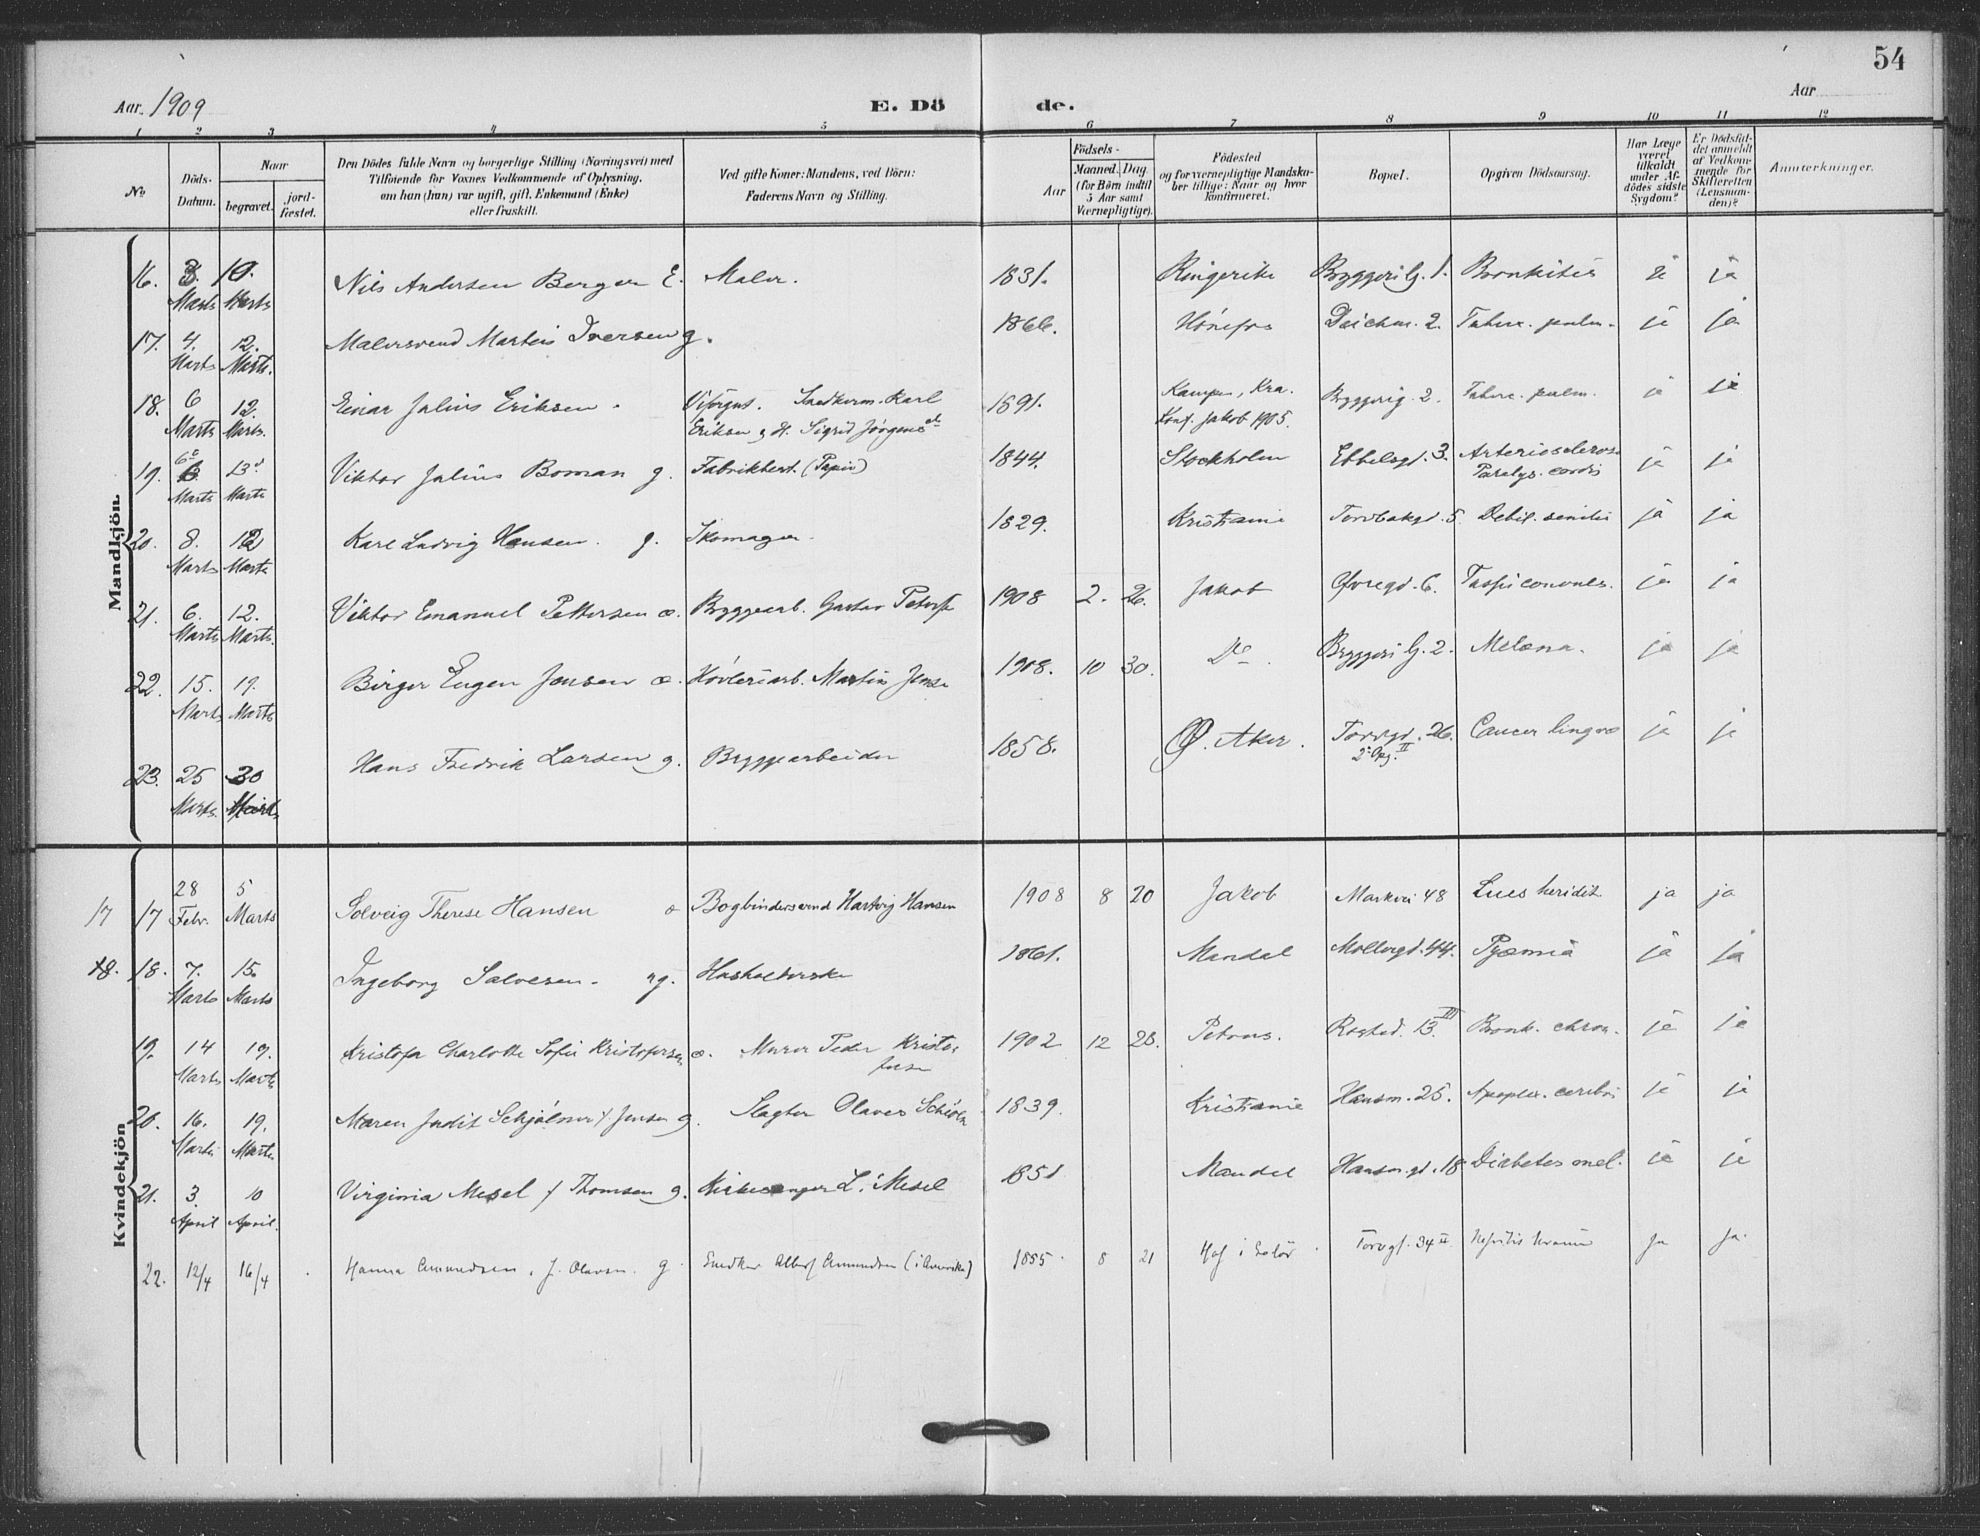 54
Aar 1909 E. Dö de. Aar
1 2 3 4 5 6 7 8 9 10 11 12
No
Döds-Datum.
Naar
begravet.
jord-fæstet.
Den Dödes fulde Navn og borgerlige Stilling (Næringsvei) med
Tilföiende for Voxnes Vedkommende af Oplysning,
om han (hun) var ugift, gift, Enkemand (Enke)
eller fraskilt.
Ved gifte Koner: Mandens, ved Börn:
Faderens Navn og Stilling.
Födsels-
Aar
Maaned. Dag
(for Börn indtil
5 Aar samt
Værnepligtige).
Födested
og for værnepligtige Mandska-
ber tillige: Naar og hvor
konfirmeret.
Bopæl.
Opgiven Dödsaarsag.
Har Læge
været
tilkaldt
under Af-
dödes sidste
Sygdom?
Er Dödsfal-
det anmeldt
af Vedkom-
mende for
Skifteretten
(Lensman-
den)?
Anmærkninger.
Mandkjön
16. 3. Marts 10. Marts Nils Andersen Berger E. Maler. 1831. Ringerike Bryggeri G. 1. Bronkitis ja ja
17. 4. Marts 12. Marts. Malersvend Martin Iversen g. 1866. Hönefos Deichm. 2. Tuberc. pulm. ja ja
18. 6 Marts 12. Marts. Einar Julius Eriksen. Visergut. Snedkerm. Karl
Eriksen & H. Sigrid Jörgine 1891. Kampen, Kra.
Konf. Jakob 1905. Bryggerig. 2. Tuberc. pulm. ja ja
19. 6 Marts 13 Marts Viktor Julius Boman g. Fabrikbest. (Papir) 1844. Stockholm Ebbelsgt. 3. Arteriosclerose
Paralys. cordis ja ja
20. 8. Marts 12 Marts Karl Ludvig Hansen. g. Skomager. 1829. Kristiania Torvbakgt. 5 Debil. senilis ja ja
21. 6. Marts 12. Marts. Viktor Emanuel Pettersen æ. Bryggearb. Gustav Peters 1908 2. 26. Jakob Övregd. 6. ja ja
22. 15. Marts 19. Marts Birger Eugen Jensen æ. Hövleriarb. Martin Jense 1908. 10 30. Do Bryggeri G. 2. Melæna. ja ja
23. 25 Marts. 30 Marts Hans Fredrik Larsen g. Bryggearbeider 1858. Ö. Aker. Torvgd. 26.
2. Opg. II Cancer lingvæ ja ja
Kvindekjön
17 17 28 Febr. 5 Marts Solveig Therese Hansen æ Bogbindersvend Hartvig Hansen 1908 8 20 Jakob Markvei 48 Lues heridit ja ja
18. 18. 7. Marts 15. Marts Ingeborg Salvesen. ug. Husholderske 1861. Mandal Mollergd. 44. Pyæmia ja ja
19. 14 Marts 19. Marts Kristofa Charlotte Sofie Kristofersen æ. Murer Peder Kristo
fersen 1902 12 28. Petrus. Rosted. 13. III Bronk. chron. ja ja
20. 16. Marts 19. Marts Maren Judit Schjölner f. Jensen g. Slagter Olaves 1839. Kristiania Hausm. 25. Apoplex. cerebri ja ja
21. 3. April 10 April. Virginia Mesel f Thomsen g. Kirkesanger L. Mesel 1851 Mandal Hausm. gt. 18 Diabetes mel. ja ja
22. 12/4 16/4 Hanna Amundsen, f. Olavsn. g. Snedker Albert Amundsen (i Amerika) 1855 8 21 Hof i Solör Torvgt. 34 II Nefritis ja ja.